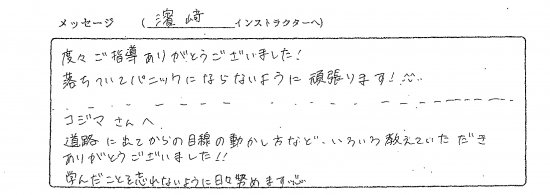 メッセージ (濱崎 インストラクターへ)
度々ご指導ありがとうございました!
落ちついてパニックにならないように頑張ります!
コジマさんへ
道路に出てからの目線の動かし方など、いろいろ教えていただき
ありがとうございました!!
学んだことを忘れないように日々努めます